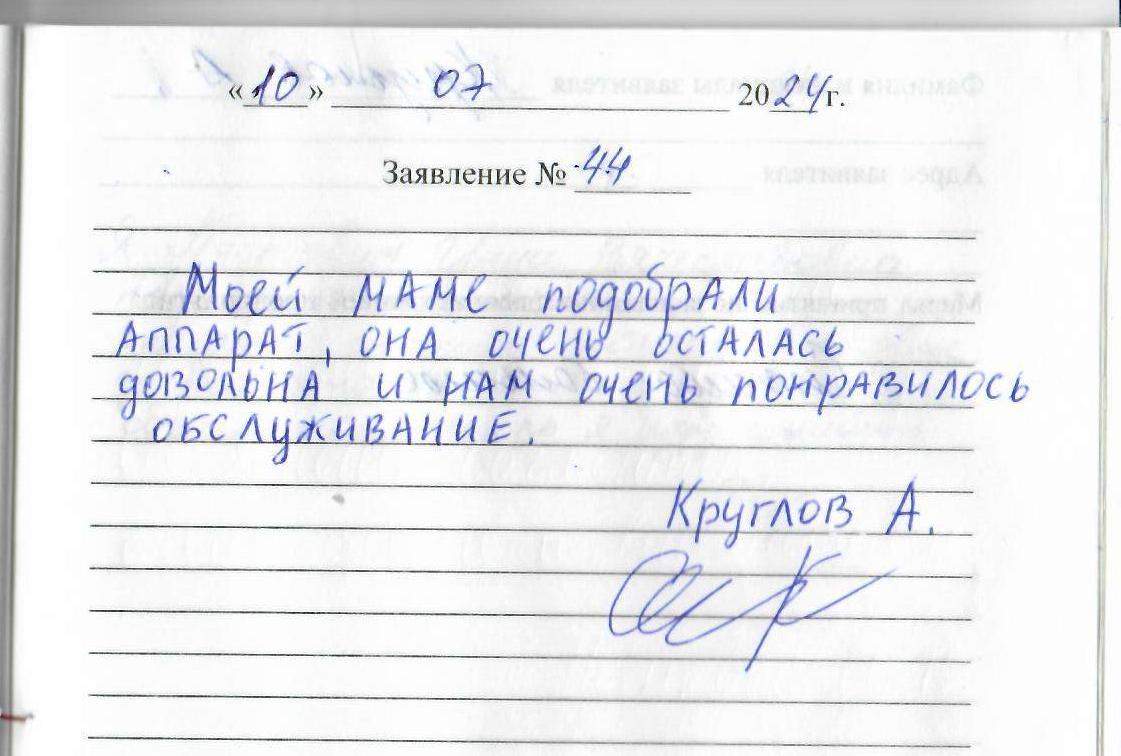 «10» 07 2024г.
Заявление № 44
Моей маме подобрали
аппарат, она очень осталась
довольна и нам очень понравилось
обслуживание.
Круглов А.